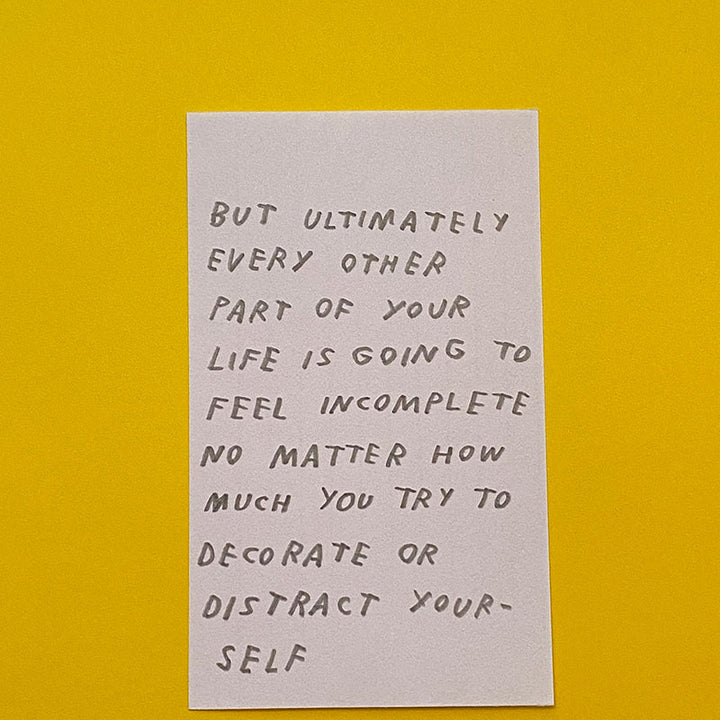 BUT ULTIMATELY
EVERY OTHER
PART OF YOUR
LIFE IS GOING TO
FEEL INCOMPLETE
NO MATTER HOW
MUCH YOU TRY TO
DECORATE OR
DISTRACT YOUR-
SELF